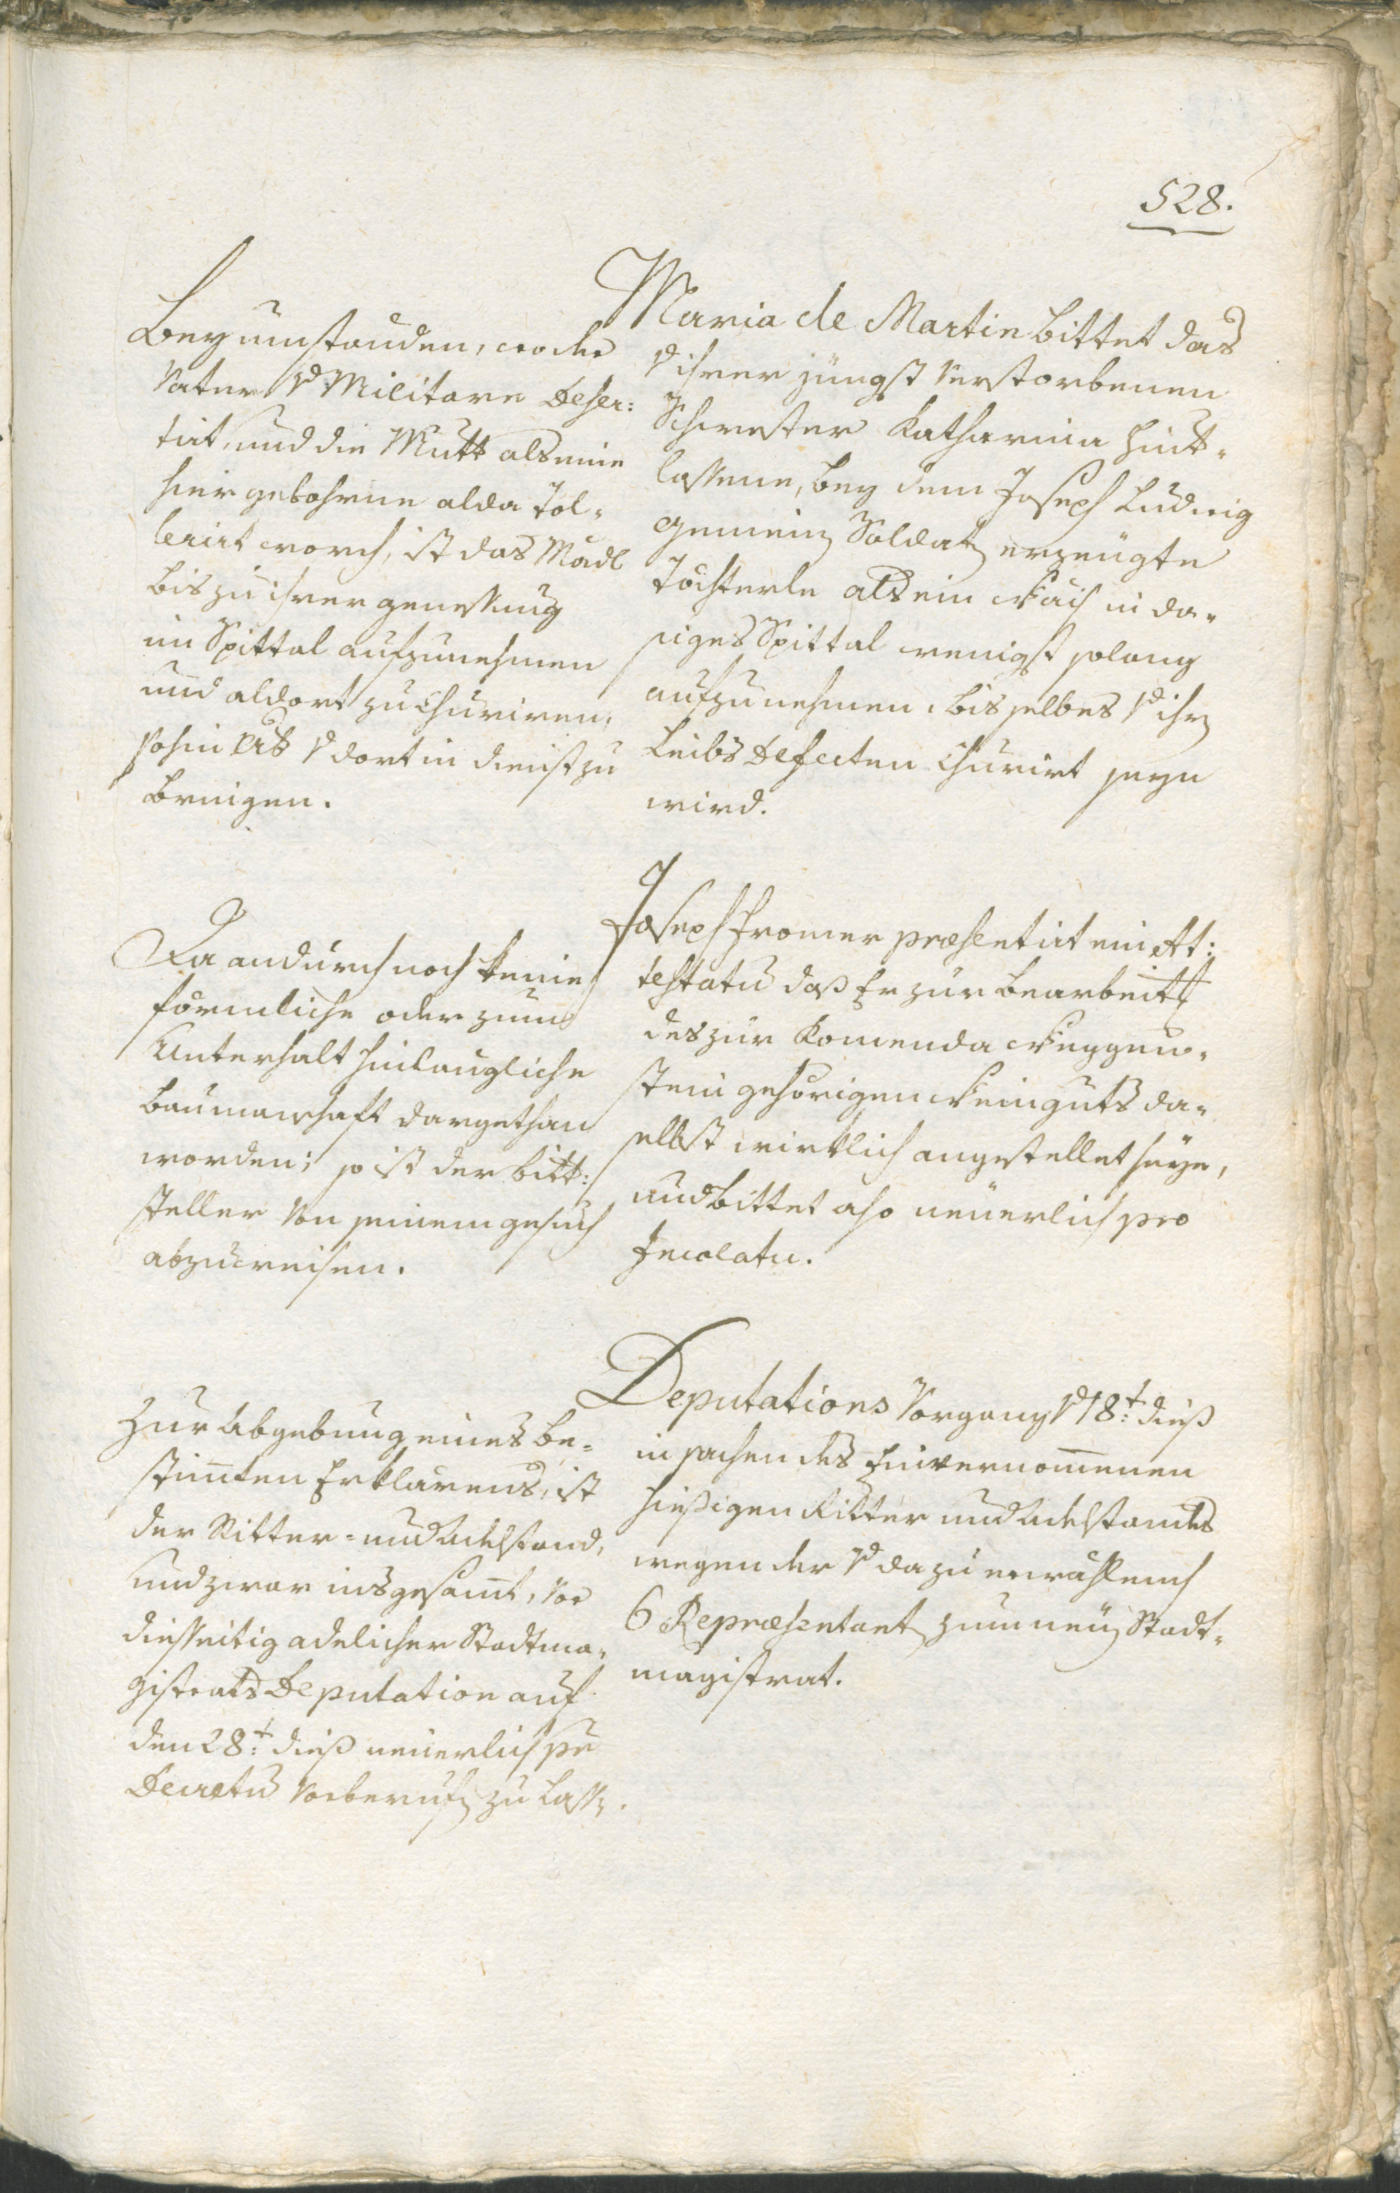 528.
Maria de Martin bittet das
v ihrer jüngst verstorbenen
Schwester Katharina hint-
lassene, bey dem Joseph Ludwig
gemein Soldat erzeugte
Töchterle als ein Wais in da-
siges Spittal wenigst solang
aufzunehmen, bis selbes v ihr
Leibs Defecten Churirt seyn
wird.
Bey umständen, wo der
Vater v Militare Deser:
tirt, und die Mutt als eine
hier gebohrne alda Tol-
lerirt word, ist das Mädl
bis zu ihrer genessung
im Spittal aufzunehmen
und aldort zu Churiren,
sohin v dort in dienst zu
bringen.
Joseph Fromer præsentirt ein At:
testatu daß Er zur bearbeit
des zur Komenda Weggen-
stein gehörigen Weinguts da-
selbst wirklich angestellet seye,
und bittet also neuerlich pro
Incolatu.
Da andurch noch keine
förmliche oder zum
Unterhalt hinlangliche
baumanschaft dargethan
worden; so ist der bitt:
steller von seinem gesuch
abzuweisen.
Deputations Vorgang v 18t: dieß
in sachen des Einvernommenen
hießigen Ritter und Adelstandes
wegen der v dazu erwählend
6 Repræsentant zum neu Stadt-
magistrat.
Zur Abgebung eines be-
stimten Erklärens, ist
der Ritter- und Adelstand,
und zwar insgesamt, vor
diesseitig adelicher Stadtma-
gistrats Deputation auf
den 28t: dieß neuerlich per
Decretu vorberufen zu lassen.